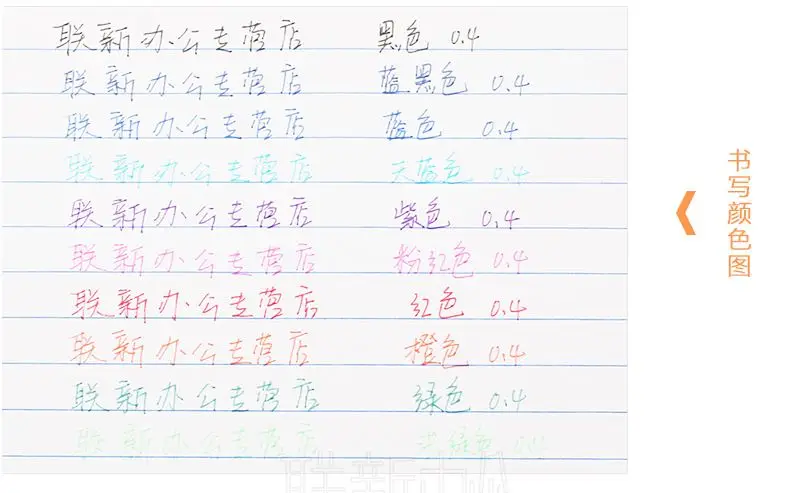 联新办公专营店 黑色 0.4
联新办公专营店 蓝黑色 0.4
联新办公专营店 蓝色 0.4
联新办公专营店 天蓝色 0.4
联新办公专营店 紫色 0.4
联新办公专营店 粉红色 0.4
联新办公专营店 红色 0.4
联新办公专营店 橙色 0.4
联新办公专营店 绿色 0.4
联新办公专营店 绿色 0.4
书写颜色图